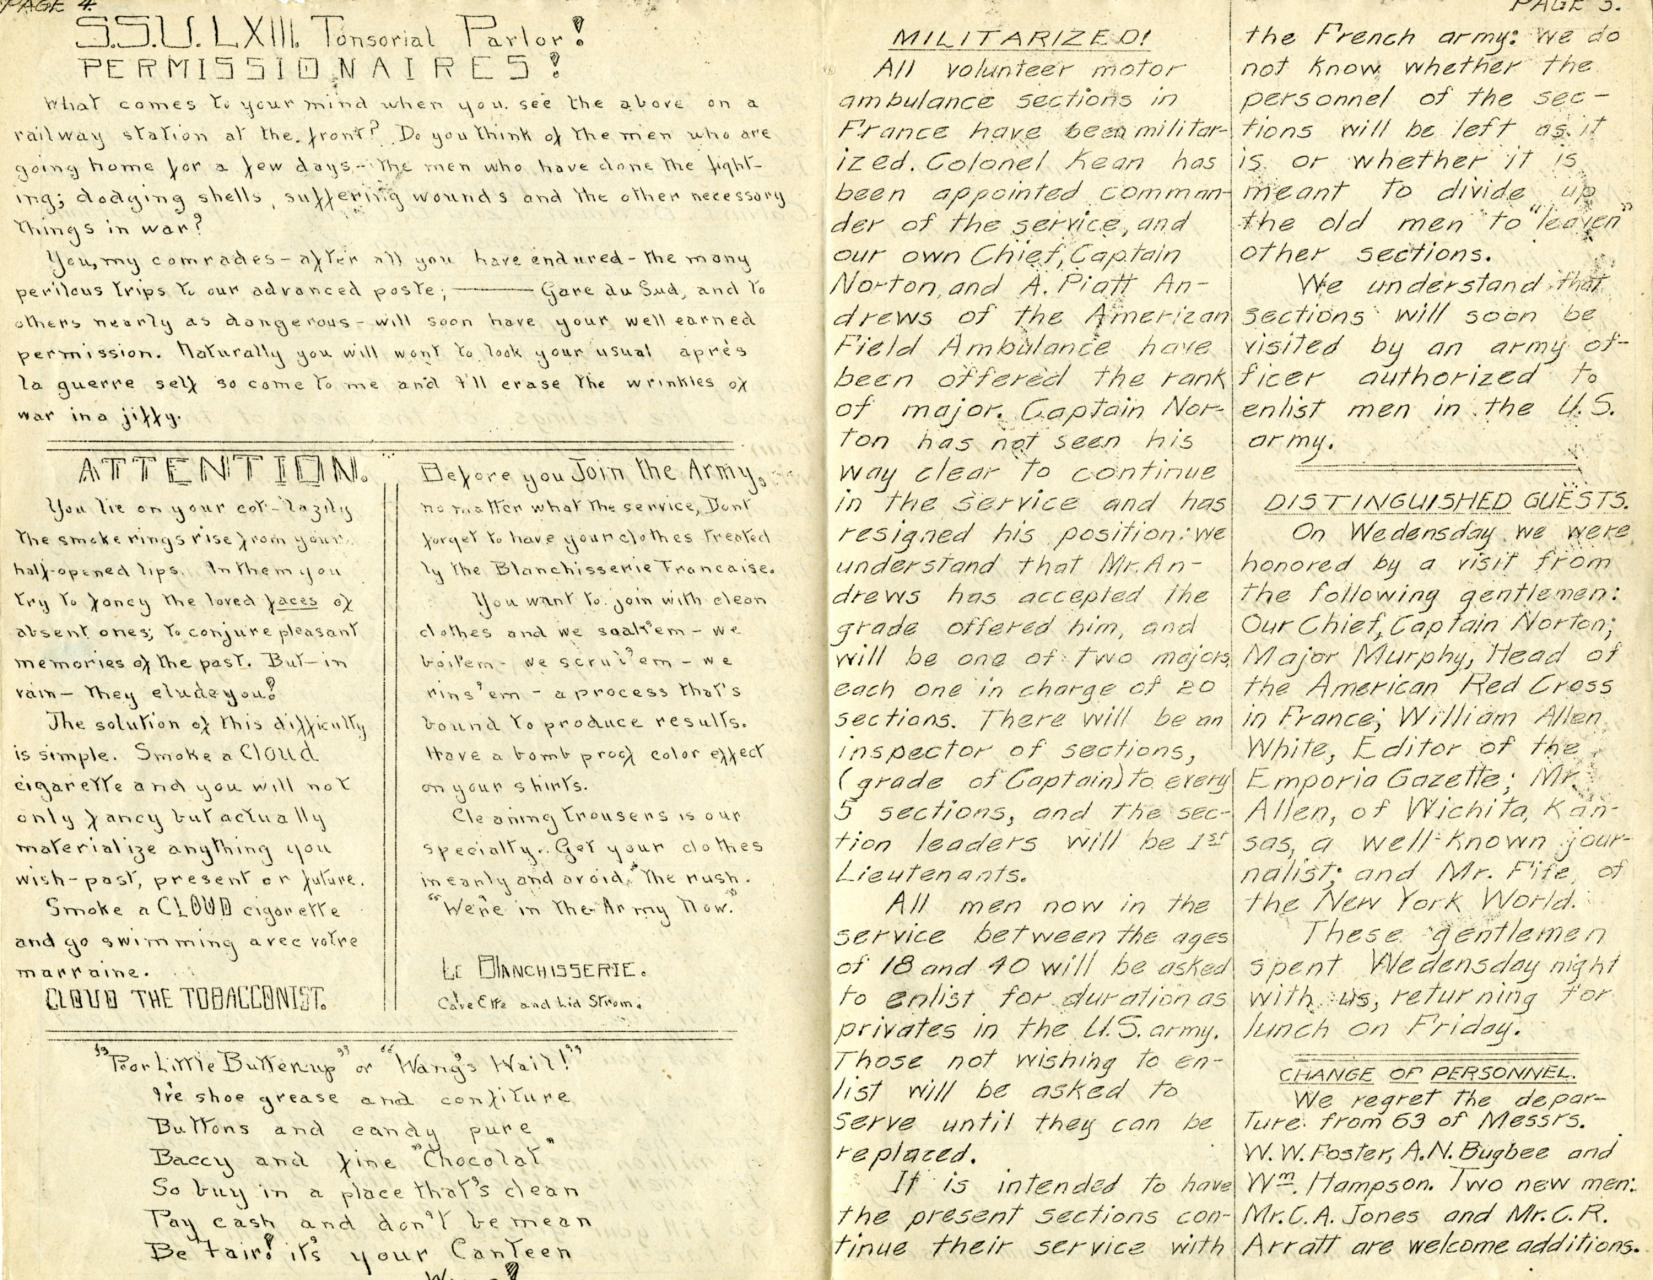 PAGE 4.
S.S.U. LXIII. Tonsorial Parlor!
PERMISSIONAIRES!
What comes to your mind when you see the above on a
railway station at the front? Do you think of the men who are
going home for a few days - the men who have done the fight-
ing; dodging shells, suffering wounds and the other necessory
things in war?
You, my comrades - after all you have endured - the many
perilous trips to our advanced poste; —— Gare du Sud, and to
others nearly as dangerous - will soon have your well earned
permission. Naturally you will want to look your usual après
la guerre self so come to me and I'll erase the wrinkles of
war in a jiffy.
ATTENTION.
You lie on your cot - lazily
the smoke rings rise from your
half-opened lips. In them you
try to fancy the loved faces of
absent ones; to conjure pleasant
memories of the past. But - in
vain - they elude you!
The solution of this difficulty
is simple. Smoke a CLOUD
cigarette and you will not
only fancy but actually
materialize anything you
wish - past, present or future.
Smoke a CLOUD cigarette
and go swimming avec votre
marraine.
CLOUD THE TOBACCONIST.
Before you Join the Army,
no matter what the service, Dont
forget to have your clothes treated
by the Blanchisserie Francaise.
You want to join with clean
clothes and we soak'em - we
boil'em - we scrub'em - we
rins'em - a process that's
bound to produce results.
Have a bomb proof color effect
on your shirts.
Cleaning trousers is our
specialty. Get your clothes
in early and avoid "the rush.
"We're in the Army Now."
LE BLANCHISSERIE.
Cave Elte and Lid Strom.
"Poor Little Buttercup" or "Wang's Wail!"
I've shoe grease and confiture
Buttons and candy pure
Baccy and fine "Chocolat"
So buy in a place that's clean
Pay cash and don't be mean
Be fair! it's your Canteen
PAGE 5.
MILITARIZED!
All volunteer motor
ambulance sections in
France have been militar-
ized. Colonel Kean has
been appointed comman-
der of the service, and
our own Chief, Captain
Norton, and A. Piatt An-
drews of the American
Field Ambulance have
been offered the rank
of major. Captain Nor-
ton has not seen his
way clear to continue
in the service and has
resigned his position: we
understand that Mr. An-
drews has accepted the
grade offered him, and
will be one of two majors
each one in charge of 20
sections. There will be an
inspector of sections,
(grade of Captain) to every
5 sections, and the sec-
tion leaders will be 1st
Lieutenants.
All men now in the
service between the ages
of 18 and 40 will be asked
to enlist for duration as
privates in the U.S. army.
Those not wishing to en-
list will be asked to
serve until they can be
replaced.
It is intended to have
the present sections con-
tinue their service with
the French army: we do
not know whether the
personnel of the sec-
tions will be left as it
is or whether it is
meant to divide up
the old men to "leaven"
other sections.
We understand that
sections will soon be
visited by an army of-
ficer authorized to
enlist men in the U.S.
army.
DISTINGUISHED GUESTS.
On Wedensday we were
honored by a visit from
the following gentlemen:
Our Chief, Captain Norton;
Major Murphy, Head of
the American Red Cross
in France; William Allen
White, Editor of the
Emporia Gazette; Mr.
Allen, of Wichita, Kan-
sas, a well-known jour-
nalist; and Mr. Fife, of
the New York World.
These gentlemen
spent Wedensday night
with us, returning for
lunch on Friday.
CHANGE OF PERSONNEL.
We regret the depar-
ture from 63 of Messrs.
W.W. Foster, A.N. Bugbee and
Wm. Hampson. Two new men:
Mr. C.A. Jones and Mr. C.R.
Arratt are welcome additions.